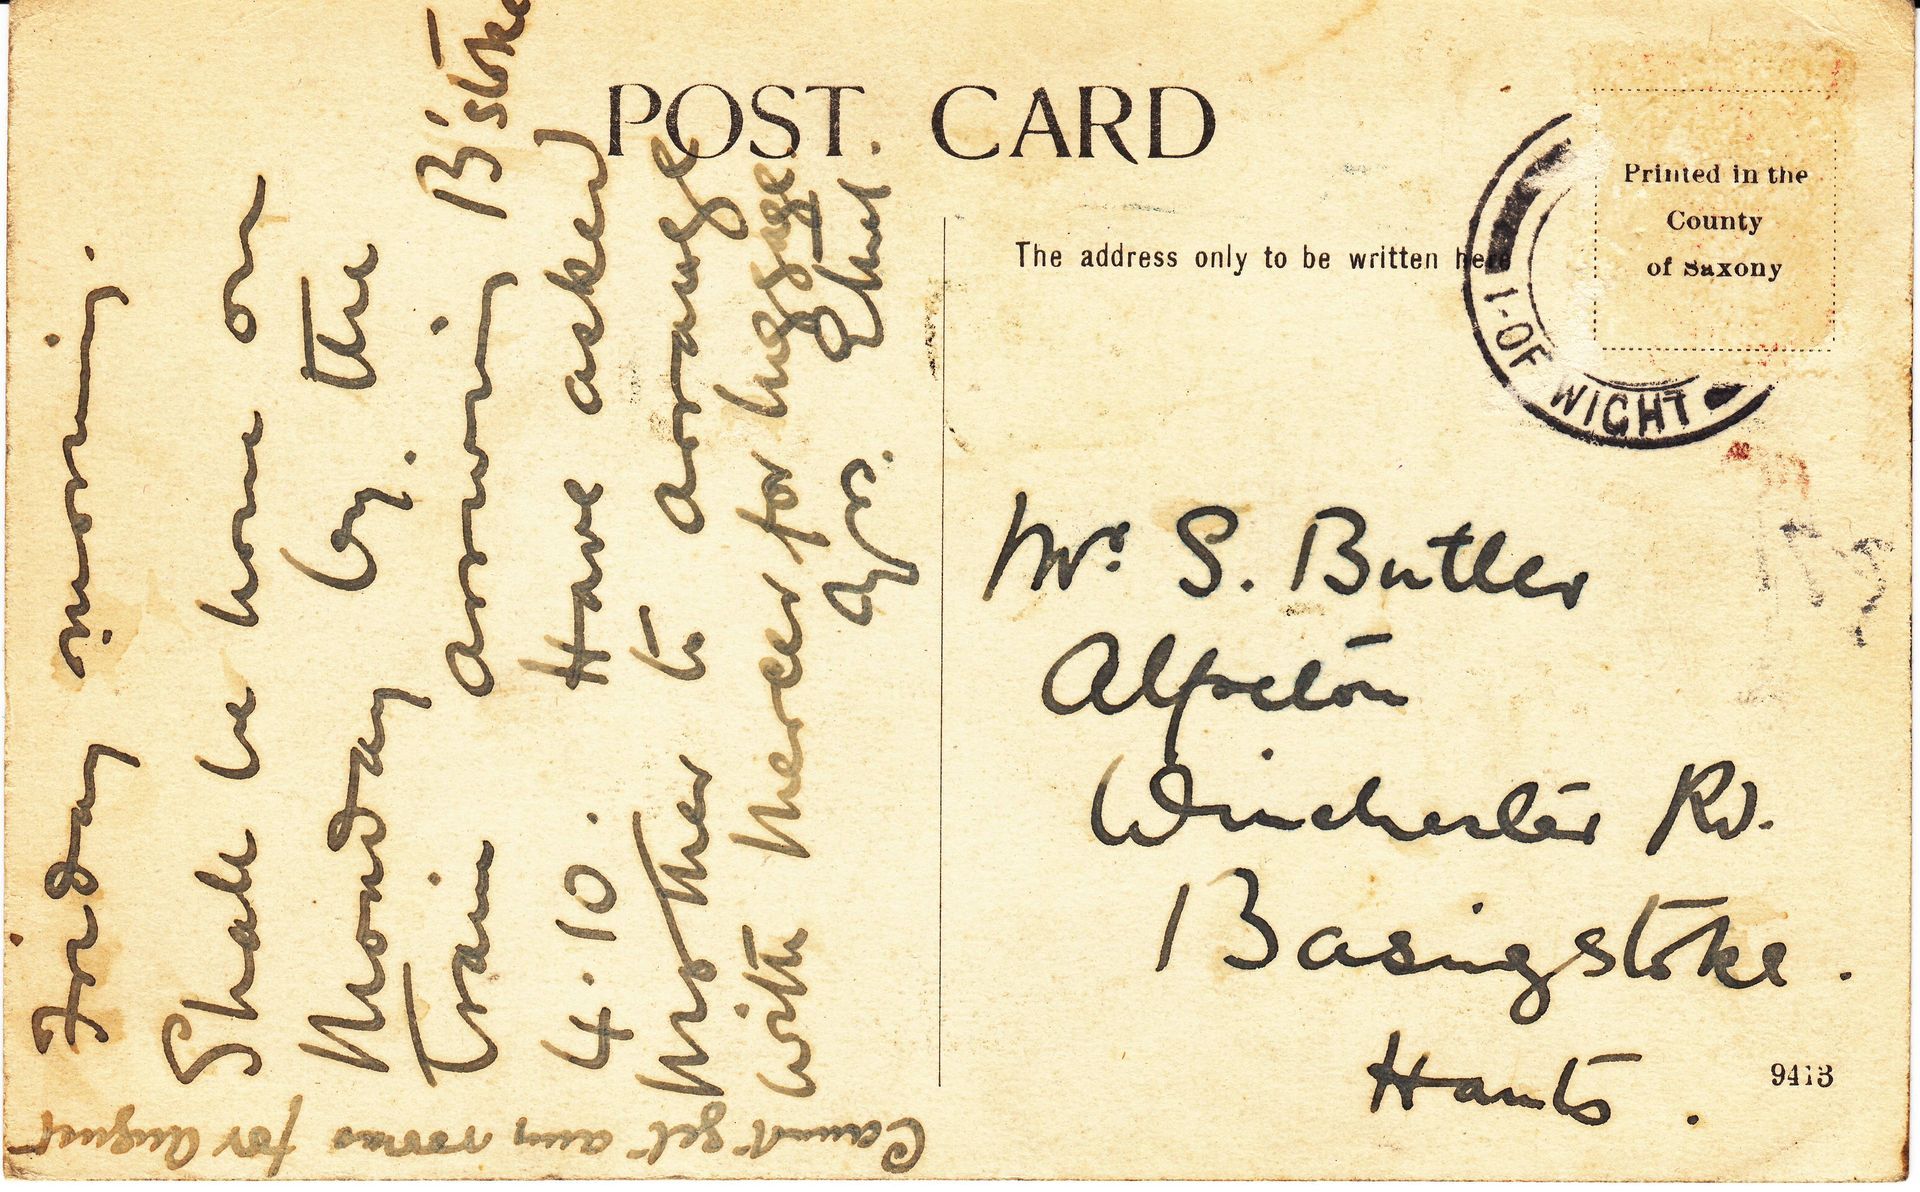 POST CARD
The address only to be written here
Printed in the
County
of Saxony
I-OF WIGHT
Friday morning.
Shall be home on
Monday by the
train arriving B'stoke
4.10. Have asked
Mother to arrange
with Mercer for luggage
Yrs. Ethel
Cannot get any rooms for August
Mr. S. Butler
Alfreton
Winchester Rd.
Basingstoke.
Hants.
9413